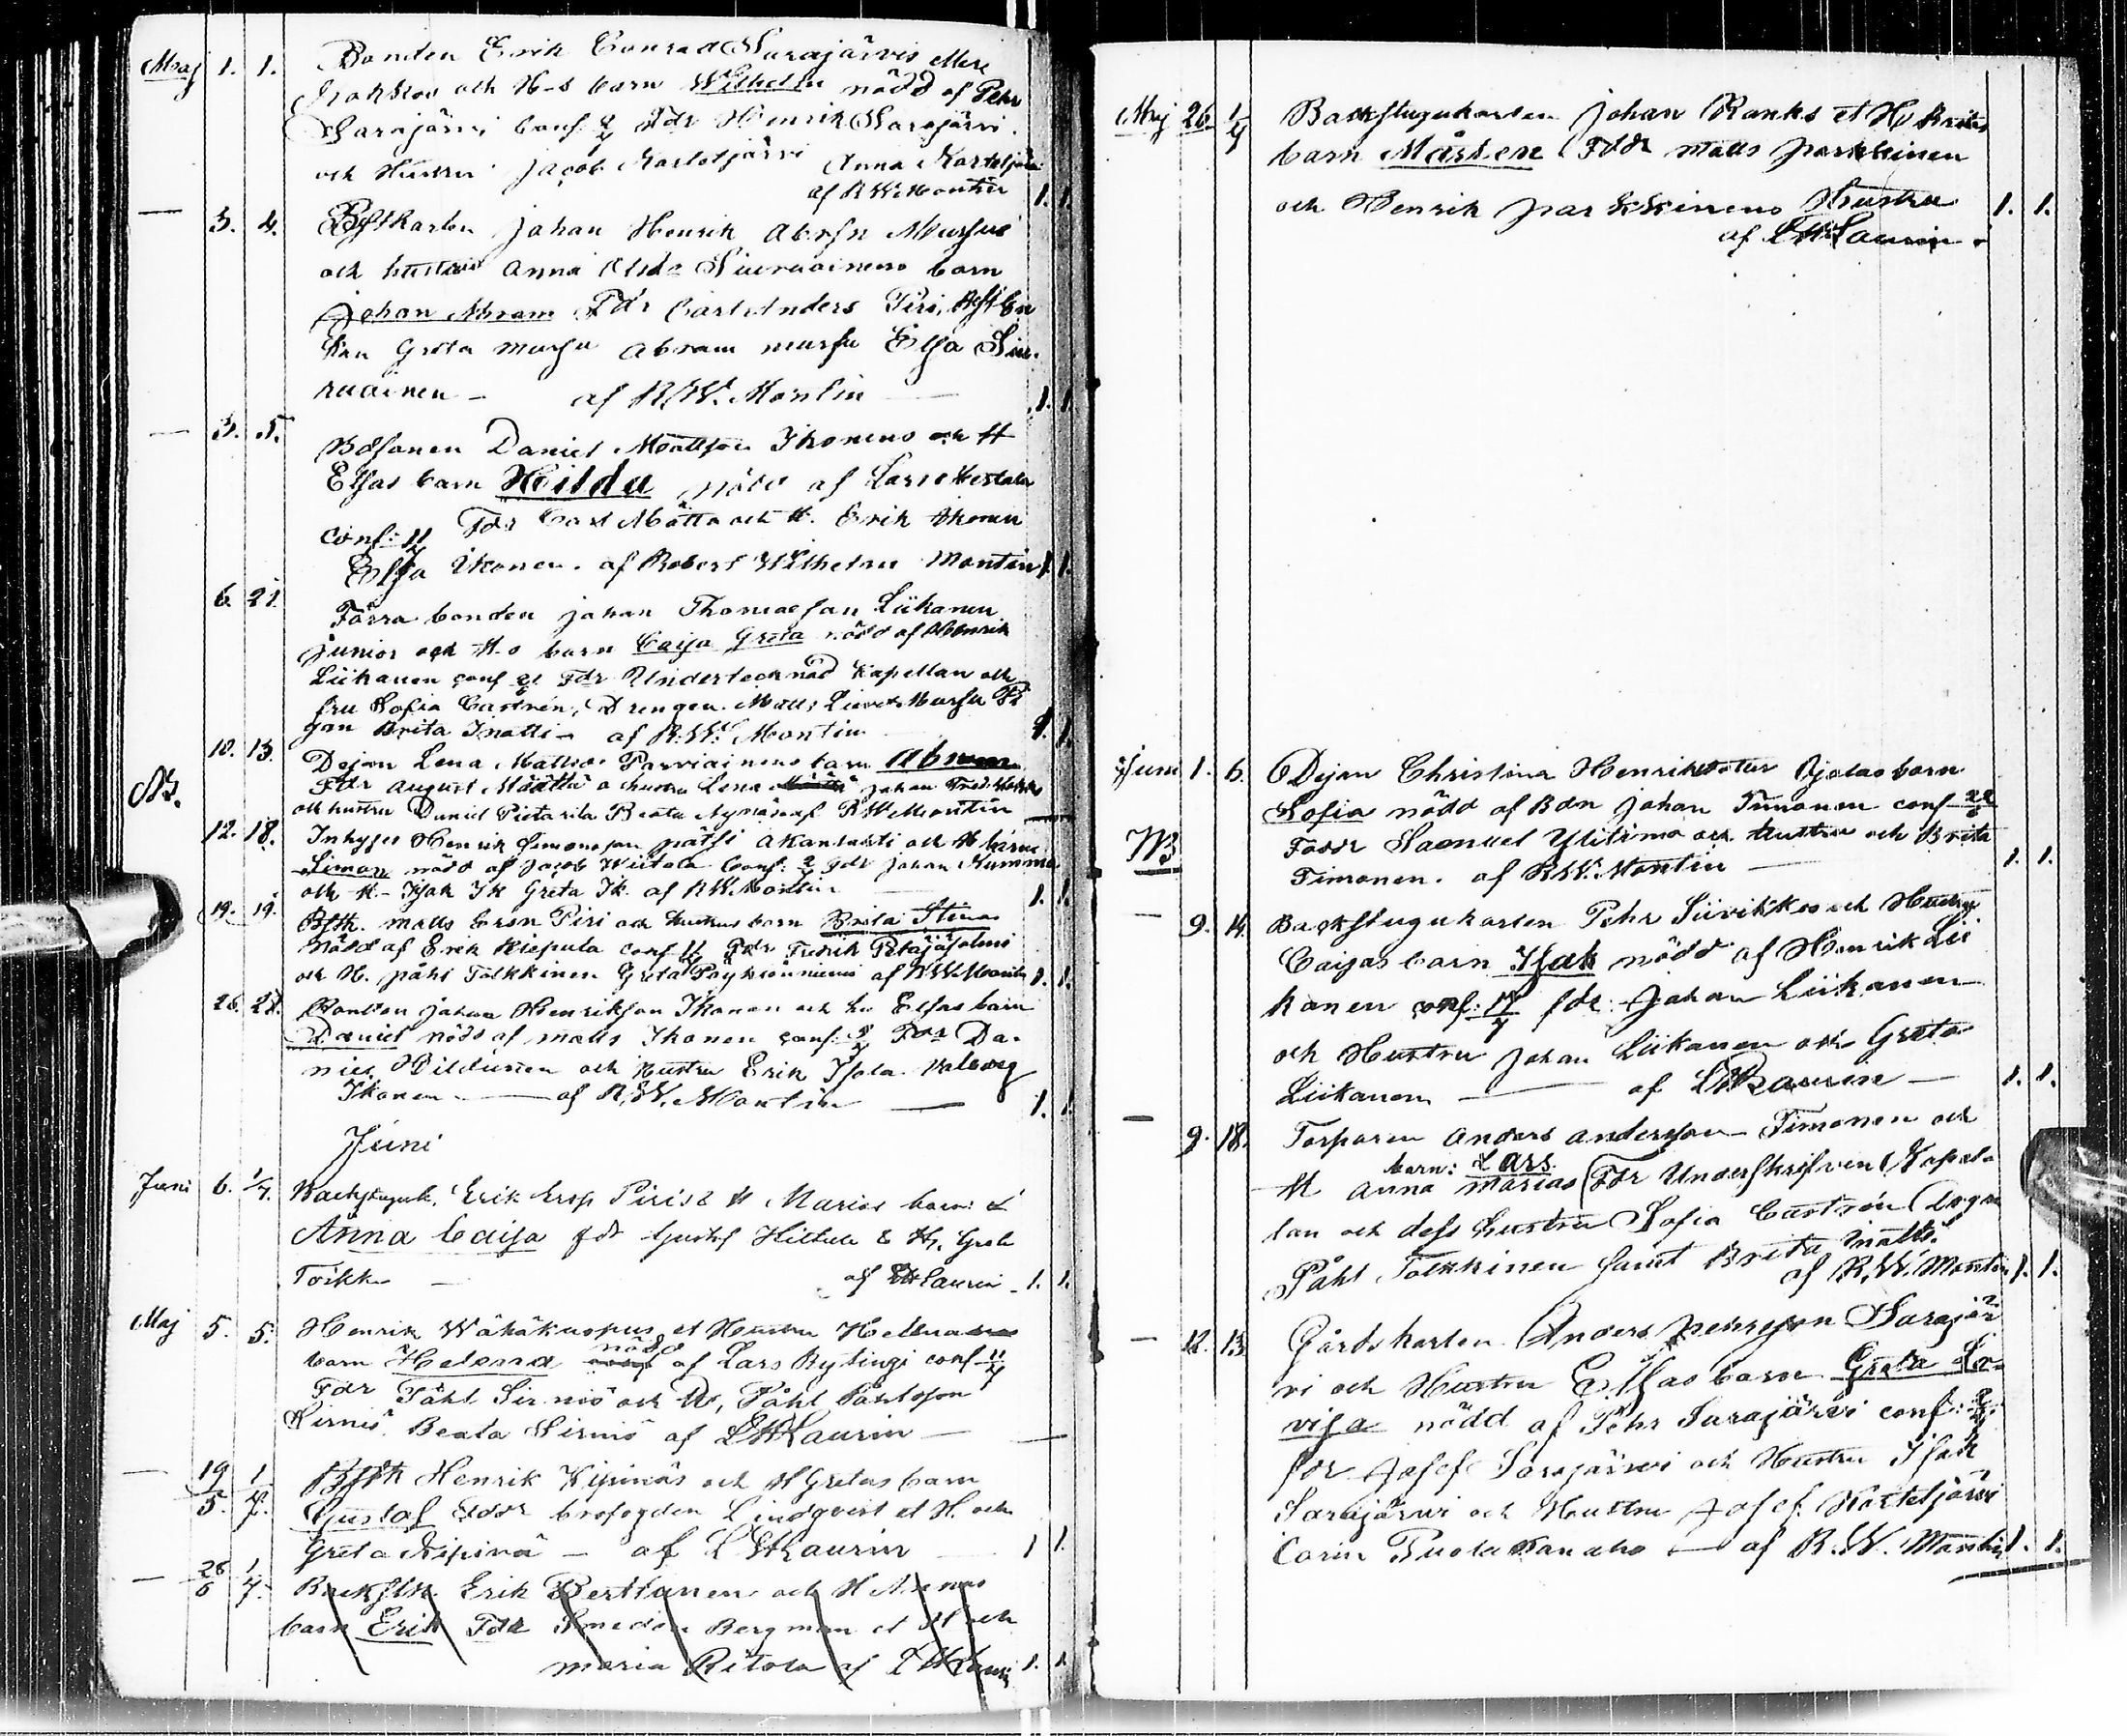 Maj 1. 1. Bonden Erik Conrad Sarajärvis eller
och H-s barn Wilhelm nödd af Pehr
Sarajärvi Conf Fdr Henrik Sarajärvi
och Hustru Jacob Korteljärvi Anna Korteljärvi
af R W Montin 1. 1.
— 3. 4. Bstkarlen Johan Henrik Abrsn Mursus
och hustrus Anna Elsa Siuruainens barn
Johan Abram Fdr Carl Anders Piri,
kan Greta Mursu Abram mursu Elsa Siu-
ruainen — af R.W. Montin — 1. 1.
— 3. 5. Bdsonen Daniel Mattson Ikonens och H
Elsas barn Hilda nödd af Lars
conf: 11/4 Fdr Carl Määtta och H. Erik Ikonen
Elsa Ikonen. af Robert Wilhelm Montin 1. 1.
6. 21. Förra bonden Johan Thomasson Liikanen
junior och H.s barn Caisa Greta nödd af Henrik
Liikanen conf Fdr Undertecknad Kapellan och
fru Sofia Castrén, Drengen Matts Mursu Pi
gan Brita Inatti — af R.W. Montin 1. 1.
10. 13. Dejan Lena Mattsdr Parviainens barn Abram
Nb. Fdr August Määttä o hustru Lena Johan
och hustru Daniel Pietarila Beata af R W Montin
12. 18. Inhyses Henrik Simonsson och H barn
Simon nödd af Jacob Wiitala Conf: Fdr Johan Kumma
och H — Isak Ik Greta Ik. af R W Montin 1. 1.
19. 19. Bstk. Matts Ersn Piri och hustrus barn Brita Stina
Nödd af Erik Riepula conf 11 Fdr Fredrik Petäjäjalmi
och H. påhl Tolkkinen Greta af R W Montin 1. 1.
26. 27. Bonden Johan Henriksson Ikonen och hu Elsas barn
Daniel nödd af matts Ikonen conf: Fdr Da-
niel och hustru Erik Isola Valborg
Ikonen — af R.W. Montin — 1. 1.
Juni
Juni 6. 1/7. Backstuguk. Erik Ersp Piris & H Marias barn:
Anna Caisa fdr Gustaf Hiltula & H, Greta
Toikka — af LHLaurin 1. 1.
Maj 5. 5. Henrik Wähäkuopus et Hustru Helenas
nödd
barn Helena af Lars Rytingi conf 11/4
Fdr Påhl Sirniö och H, Påhl Påhlsson
Sirniö Beata Sirniö af LHLaurin —
— 19/5. 1/7. Bstk Henrik Kipinäs och H Gretas barn
Gustaf Fddr brofogden Lindqvist et H. och
Greta Kipinä — af LHLaurin 1 1.
— 26/6 1/7. Backstk. Erik Berttunen och H Annas
barn Erik Fdr Smeden Bergman et H och
Maria Ritola af LHLaurin 1. 1.
Maj 26. 1/4 Backstugukarlen Johan Ranks et H Britas
barn Mårten Fddr matts parkkinen
och Henrik parkkinens Hustru 1. 1.
af LHLaurin.
Juni 1. 6. Dejan Christina Henriksdotter Ojalas barn
Sofia nödd af Bdn Johan Timonen conf 22/6
NB Faddr Samuel Ylitimo och hustru och Brita
Timonen. af R.W. Montin — 1. 1.
— 9. 14. Backstugukarlen Pehr Siivikkos och Hustru
Caisas barn Isak nödd af Henrik Lii
kanen conf: 17/7 fdr: Johan Liikanen
och Hustru Johan Liikanen och Greta
Liikanen — af LHLaurin — 1. 1.
— 9. 18. Torparen Anders Andersson Timonen och
barn: Lars.
H Anna Marias Fdr Underskrifven Kapela
lan och dess hustru Sofia Castrén
Påhl Tolkkinen samt Brita Inatti.
af R.W. Montin 1. 1.
— 12. 13. Gårdskarlen Anders Pehrsson Sarajär
vi och Hustru Elsas barn Greta Lo-
visa nödd af Pehr Sarajärvi conf:
fdr Josef Sarajärwi och Hustru Isak
Sarajärwi och Hustru Josef Korteljärwi
Carin Puolakanaho — af R.W. Montin 1. 1.